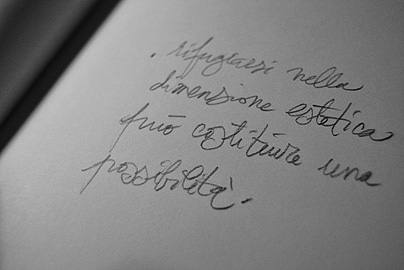 . rifugiarsi nella
dimensione estetica
può costituire una
possibilità.